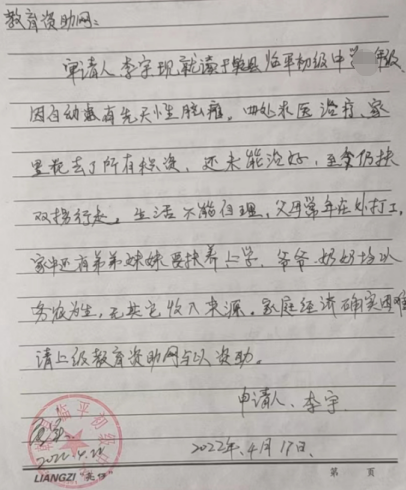 教育资助网：
申请人李宇现就读于 临平初级中 年级
因自幼患有先天性脑瘫。四处求医治疗、家
里花去了所有积蓄，还未能治好，至今仍扶
双拐行走。生活不能自理，父母常年在外打工，
家中还有弟弟妹妹要扶养上学，爷爷、奶奶均以
务农为生，无其它收入来源，家庭经济确实困难
请上级教育资助网予以资助。
申请人、李宇
2022年、4月17日、
临平初级
2022.4.20
LIANGZI 第 页